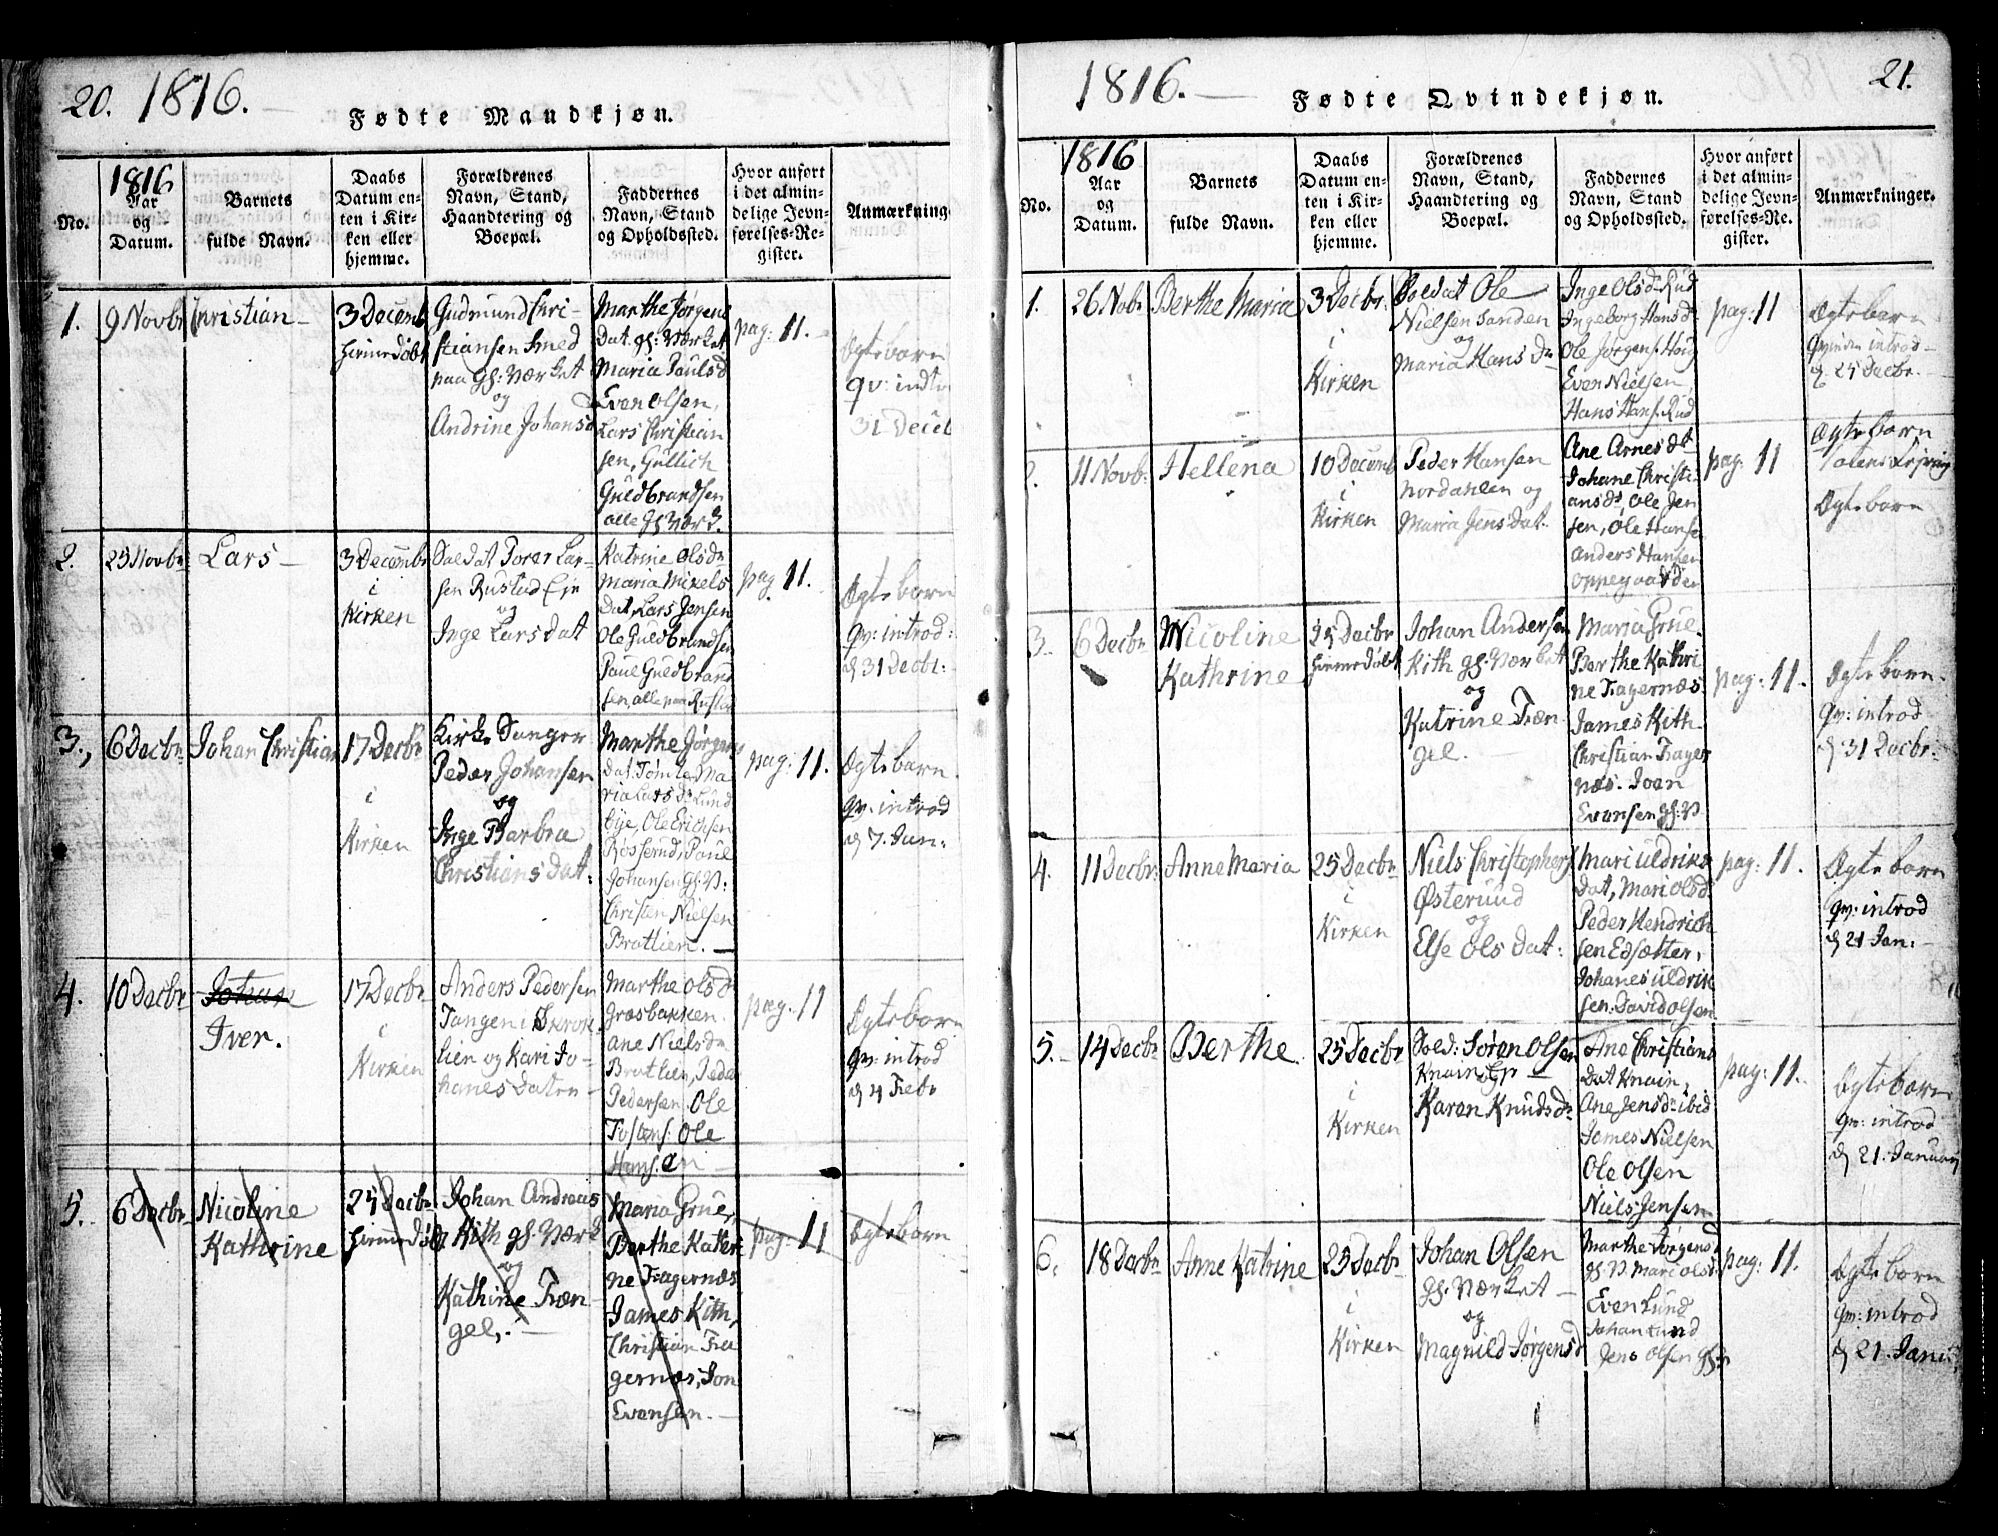 20. 1816.
Fødte Mandkjøn.
No.
1816
Aar
og
Datum.
Barnets
fulde Navn.
Daabs
Datum en-
ten i Kir-
ken eller
hjemme.
Forældrenes
Navn, Stand,
Haandtering og
Boepæl.
Faddernes
Navn, Stand
og Opholdssted.
Hvor anført
i det almin-
delige Jevn-
førelses-Re-
gister.
Anmærkning
1.
9 Novbr
Christian
3 Decemb
hiemedøbt
Gudmund Chri-
stiansen Smed
paa gs: Værket
og
Andrine Johansd
Marthe Jørgens
Dat. gs: Værket
Maria Paulsd
Even Olsen,
Lars Christian
sen, Gullich
Guldbrandsen
alle gs Værk.
pag: 11.
Ægtebarn
qv: indtr
31 Deceb
2.
25 Novbr
Lars
3 Decembr
i
Kirken
Soldat Porer Lar-
sen Rustad Eje
og
Inge Larsdat
Katrine Olsdr
Maria Mikels
Dat, Lars Jensen
Ole Guldbrandsen
Paul Guldbrand
sen, alle paa Rustad
pag. 11.
Ægtebarn
qv: introd:
d 31 Decbr:
3.,
6 Decbr
Johan Christian
17 Decbr
i
Kirken
Kirke Sanger
Peder Johansen
og
Inge Barbra
Christians Dat:
Marthe Jørgens
Dat. Tomte, Ma
ria Lars Dr Lund
bye, Ole Erichsen
Rosserud, Paul
Johansen gs: V:
Christen Nielsen
Bratlien.
pag: 11.
Ægtebarn.
qv: introd
d 7. Jan:
4.
10 Decbr
Johan
Iver.
17 Decbr
i
Kirken
Anders Pedersen
Tangen i Skrok
lien og Kari Jo-
hanes Daten
Marthe Olsd
Græsbakken.
ane Nielsdr
Bratlien, Peder
Pedersen. Ole
Tostens: Ole
Hans. en
pag: 11
Ægtebarn
qv: introd
d 4 Febr
5.
6 Decbr
Nicoline
Kathrine
25 Decbr
hiemedøbt
Johan Andreas
Kith gs: Værk
og
Kathine Træn-
gel,.
Maria Grue,
Berthe Kathri
ne Fragernæs
James Kith,
Christian Fra
gernæs, Jon
Evensen.
pag: 11
Ægtebarn
1816.
Fødte Qvindekjøn.
21.
No.
1816
Aar
og
Datum.
Barnets
fulde Navn.
Daabs
Datum en-
ten i Kir-
ken eller
hjemme.
Forældrenes
Navn, Stand,
Haandtering og
Boepæl.
Faddernes
Navn, Stand
og Opholdssted.
Hvor anført
i det almin-
delige Jevn-
førelses-Re-
gister.
Anmærkninger.
1.
26 Nobr
Berthe Maria
3 Decbr.
i
Kirken
Soldat Ole
Nielsen Sanden
og
Maria Hans Dr
Inge Olsdr Rud
Ingeborg Hansd
Ole Jørgens. Houg
Even Nielsen,
Hans Hans. Rud
pag: 11
Ægtebarn
Qvinden introd
d. 25 Decbr.
2.
11 Novb.
Hellena
10 Decemb
i
Kirken
Peder Hansen
Nordahlen og
Maria Jens dat.
Ane Arnes dt
Johane Christi
ansdt Ole Jen
sen, Ole Hansen
Anders Hansen
Oppegaarden
pag. 11
Ægtebarn
Ægtebarn
3.
6 Decbr
Nicoline
Kathrine
25 Decbr
hiemedøbt
Johan Andersen
Kith gs: Værket
og
Katrine Træn
gel.
Maria Grue.
Berthe Kathri
ne Fragernæs
James Kith
Christian Frager
næs. Joen
Evensen gs: V
pag: 11.
Ægtebarn.
qv: introd
d 31 Decbr.
4.
11 Decbr:
Anne Maria
25 Decbr
i
Kirken
Niels Christophers
Østerund
og
Else Ols Dat:
Mari Uldriks
Dat, Mari Olsd
Peder Hendrich
sen Edsætter,
Johanes Uldrik
sen. David Olsen
pag: 11.
Ægtebarn
qv: introd
d 21 Jan.
5.
14 Decbr
Berthe
25 Decbr
i
Kirken
Sold: Søren Olsen
Knain Ep
og
Karen Knudsdr
Ane Christians
Dat Knain,
Ane Jensdr ibid
James Nielsen
Ole Olsen
Niels Jensen
pag: 11.
Ægtebarn
qv: introd
d 21. Januar
6.
18 Decbr
Anne Katrine
25 Decbr
i
Kirken
Johan Olsen
gs: Værket
og
Magnild Jørgensd
Marthe Jørgensd
gs: V. Mari Olsd
Even Lund
Johan Lund
Jens Olsen gs:
pag: 11.
Ægtebarn
qv: introd
d 21. Janu